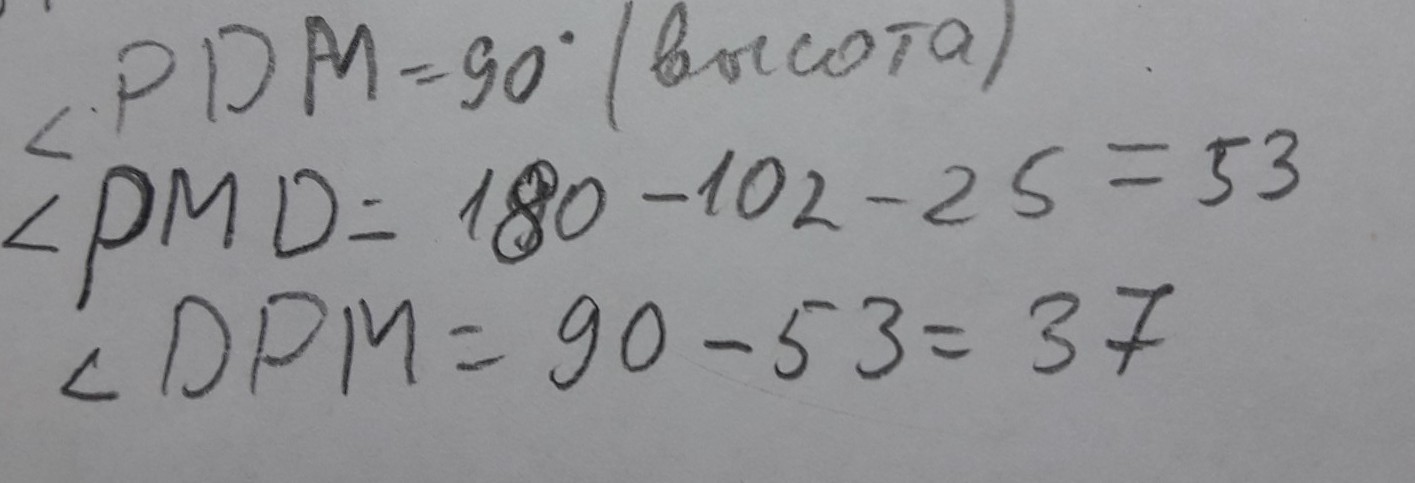 <PDM=90° (высота)
<PMD= 180-102-25=53
<DPM= 90-53=37